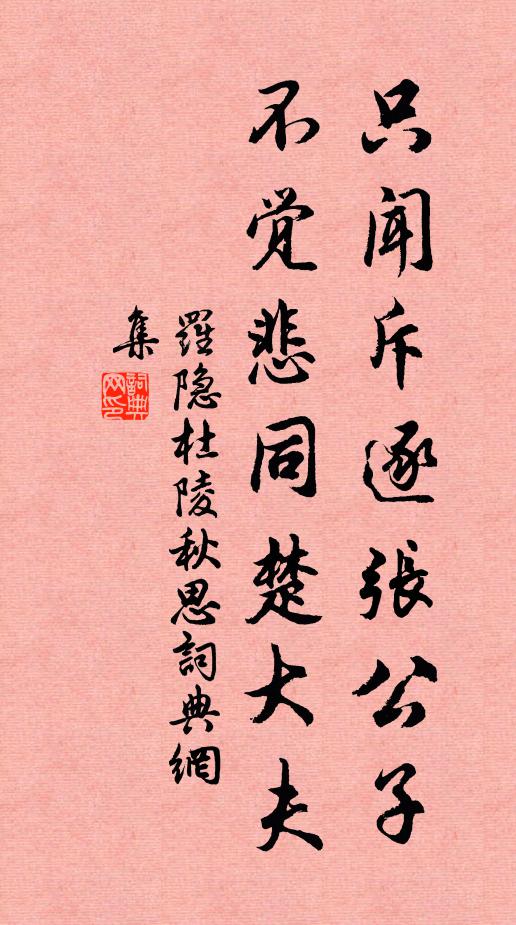 只聞斥逐張公子
不觉悲同楚大夫
羅隐杜陵秋思詞典網
集
詞典
网印